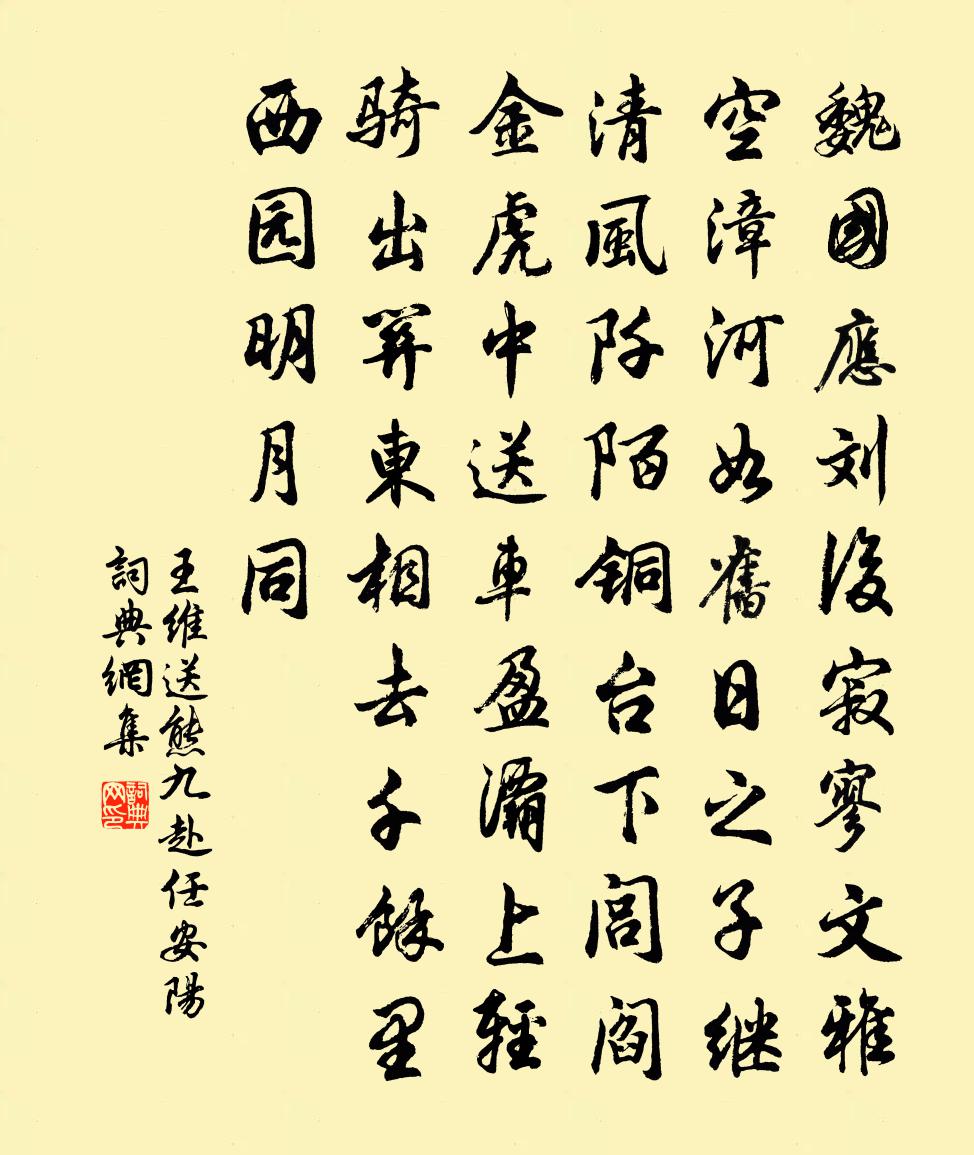 魏國應刘後寂寥文雅
空漳河如舊日之子继
清風阡陌铜台下闾阎
金虎中送車盈灞上輕
騎出關東相去千餘里
西园明月同
王維送熊九赴任安陽
詞典網集
詞典网印